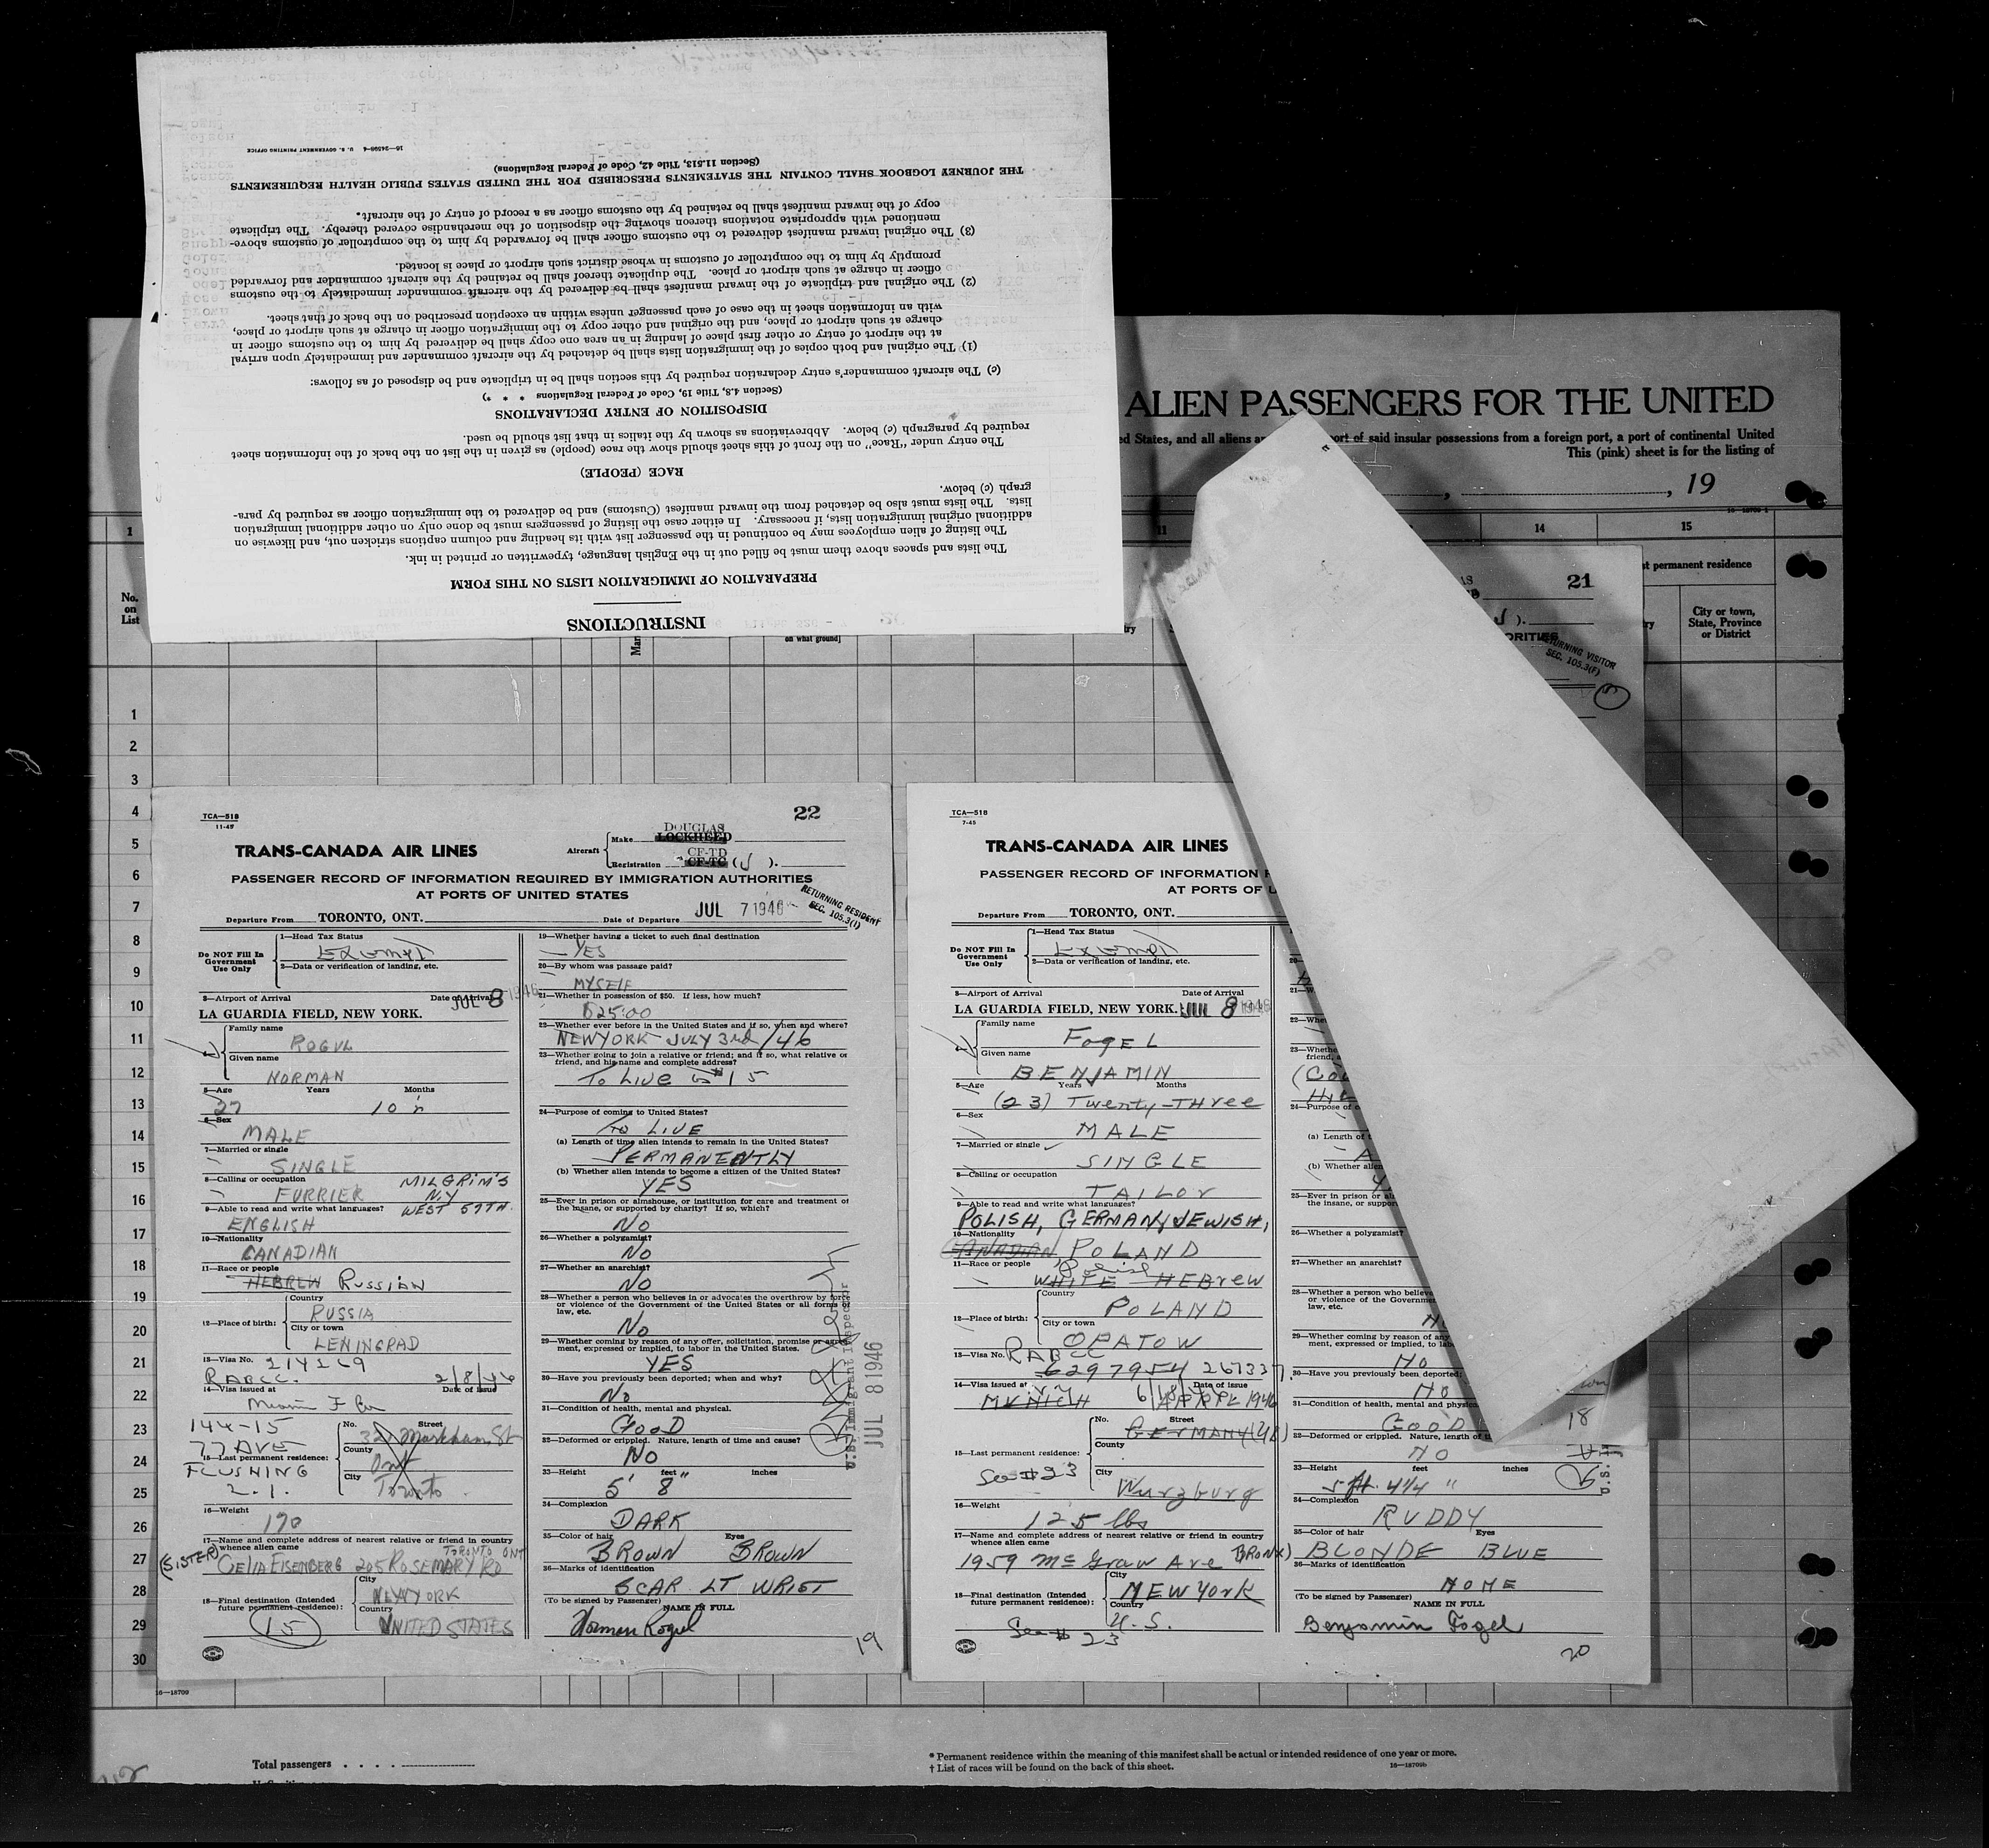 INSTRUCTIONS
PREPARATION OF IMMIGRATION LISTS ON THIS FORM
The lists and spaces above them must be filled out in the English language, typewritten or printed in ink.
The listing of alien employees may be continued in the passenger list with its heading and column captions stricken out, and likewise on
additional original immigration lists, if necessary. In either case the listing of passengers must be done only on other additional immigration
lists. The lists must also be detached from the inward manifest (Customs) and be delivered to the immigration officer as required by para-
graph (c) below.
RACE (PEOPLE)
The entry under "Race" on the front of this sheet should show the race (people) as given in the list on the back of the information sheet
required by paragraph (c) below. Abbreviations as shown by the italics in that list should be used.
DISPOSITION OF ENTRY DECLARATIONS
(Section 4.8, Title 19, Code of Federal Regulations * * *)
(c) The aircraft commander's entry declaration required by this section shall be in triplicate and be disposed of as follows:
(1) The original and both copies of the immigration lists shall be detached by the aircraft commander and immediately upon arrival
at the airport of entry or other first place of landing in an area one copy shall be delivered by him to the customs officer in
charge at such airport or place, and the original and other copy to the immigration officer in charge at such airport or place,
with an information sheet in the case of each passenger unless within an exception prescribed on the back of that sheet.
(2) The original and triplicate of the inward manifest shall be delivered by the aircraft commander immediately to the customs
officer in charge at such airport or place. The duplicate thereof shall be retained by the aircraft commander and forwarded
promptly by him to the comptroller of customs in whose district such airport or place is located.
(3) The original inward manifest delivered to the customs officer shall be forwarded by him to the comptroller of customs above-
mentioned with appropriate notations thereon showing the disposition of the merchandise covered thereby. The triplicate
copy of the inward manifest shall be retained by the customs officer as a record of entry of the aircraft.
THE JOURNEY LOGBOOK SHALL CONTAIN THE STATEMENTS PRESCRIBED FOR THE UNITED STATES PUBLIC HEALTH REQUIREMENTS
(Section 11.513, Title 42, Code of Federal Regulations)
16—24598-4 U. S. GOVERNMENT PRINTING OFFICE
ALIEN PASSENGERS FOR THE UNITED
ed States, and all aliens port of said insular possessions from a foreign port, a port of continental United
This (pink) sheet is for the listing of
, 19
1 11 14 15
permanent residence
No.
on
List
on what ground]
City or town,
State, Province
or District
21
RETURNING VISITOR
SEC. 105.3(F)
1
2
3
4
5
6
7
8
9
10
11
12
13
14
15
16
17
18
19
20
21
22
23
24
25
26
27
28
29
30
TCA—518
11-45
22
TRANS-CANADA AIR LINES
Aircraft
Make DOUGLAS LOCKHEED
Registration CF-TD CF-TC (J).
PASSENGER RECORD OF INFORMATION REQUIRED BY IMMIGRATION AUTHORITIES
AT PORTS OF UNITED STATES
RETURNING RESIDENT
SEC. 105.3(1)
Departure From TORONTO, ONT. Date of Departure JUL 7 1946
Do NOT Fill In
Government
Use Only
1—Head Tax Status
Exempt
2—Data or verification of landing, etc.
3—Airport of Arrival Date of Arrival
LA GUARDIA FIELD, NEW YORK. JUL 8 1946
Family name
ROGUL
Given name
NORMAN
5—Age Years Months
27 10
6—Sex
MALE
7—Married or single
SINGLE
8—Calling or occupation MILGRIM'S
FURRIER N.Y
9—Able to read and write what languages? WEST 57TH.
ENGLISH
10—Nationality
CANADIAN
11—Race or people
HEBREW RUSSIAN
12—Place of birth:
Country
RUSSIA
City or town
LENINGRAD
13—Visa No. 214269
RABCC. 2/8/46
14—Visa issued at Date of issue
Miami Fla
144-15
77 AVE
FLUSHING
L.I.
15—Last permanent residence:
No. Street
321 Markham St
County
Ont
City
Toronto
16—Weight
170
17—Name and complete address of nearest relative or friend in country
whence alien came TORONTO ONT
(SISTER) CELIA EISENBERG 205 ROSEMARY RD
18—Final destination (Intended
future permanent residence):
City
NEW YORK
Country
UNITED STATES
15
19—Whether having a ticket to such final destination
YES
20—By whom was passage paid?
MYSELF
21—Whether in possession of $50. If less, how much?
$25.00
22—Whether ever before in the United States and if so, when and where?
NEW YORK - JULY 3rd/46
23—Whether going to join a relative or friend; and if so, what relative or
friend, and his name and complete address?
To Live #15
24—Purpose of coming to United States?
TO LIVE
(a) Length of time alien intends to remain in the United States?
PERMANENTLY
(b) Whether alien intends to become a citizen of the United States?
YES
25—Ever in prison or almshouse, or institution for care and treatment of
the insane, or supported by charity? If so, which?
NO
26—Whether a polygamist?
NO
27—Whether an anarchist?
NO
28—Whether a person who believes in or advocates the overthrow by force
or violence of the Government of the United States or all forms of
law, etc.
NO
29—Whether coming by reason of any offer, solicitation, promise or agree-
ment, expressed or implied, to labor in the United States.
YES
30—Have you previously been deported; when and why?
NO
31—Condition of health, mental and physical.
GOOD
32—Deformed or crippled. Nature, length of time and cause?
NO
33—Height feet inches
5' 8"
34—Complexion
DARK
35—Color of hair Eyes
BROWN BROWN
36—Marks of identification
SCAR LT WRIST
(To be signed by Passenger) NAME IN FULL
Norman Rogul
19
U.S. Immigrant Inspector
JUL 8 1946
TCA—518
7-45
TRANS-CANADA AIR LINES
PASSENGER RECORD OF INFORMATION
AT PORTS OF U
Departure From TORONTO, ONT.
Do NOT Fill In
Government
Use Only
1—Head Tax Status
Exempt
2—Data or verification of landing, etc.
3—Airport of Arrival Date of Arrival
LA GUARDIA FIELD, NEW YORK. JUL 8 1946
Family name
FOGEL
Given name
BENJAMIN
5—Age Years Months
(23) Twenty-Three
6—Sex
MALE
7—Married or single
SINGLE
8—Calling or occupation
TAILOR
9—Able to read and write what languages?
POLISH, GERMAN, JEWISH,
10—Nationality
CANADIAN POLAND
11—Race or people Polish
WHITE HEBREW
12—Place of birth:
Country
POLAND
City or town
OPATOW
13—Visa No. RABCC
6297954 267337
14—Visa issued at Date of issue
MUNICH APRIL 1946
15—Last permanent residence:
No. Street
GERMANY
County
See #23
City
Wurzburg
16—Weight
125 lbs
17—Name and complete address of nearest relative or friend in country
whence alien came
1959 McGraw Ave BRONX)
18—Final destination (Intended
future permanent residence):
City
NEW YORK
Country
U.S.
See # 23
24—Purpose of
(a) Length of
(b) Whether alien
25—Ever in prison or
the insane, or suppor
26—Whether a polygamist?
27—Whether an anarchist?
28—Whether a person who
or violence of the
law, etc.
29—Whether coming by reason of any
ment, expressed or implied, to
NO
30—Have you previously been deported;
NO
31—Condition of health, mental and
GOOD
32—Deformed or crippled. Nature, length of
NO
33—Height feet inches
5 ft. 4¼ "
34—Complexion
RUDDY
35—Color of hair Eyes
BLONDE BLUE
36—Marks of identification
NONE
(To be signed by Passenger) NAME IN FULL
Benjamin Fogel
20
18
16—18709
Total passengers . . . .
* Permanent residence within the meaning of this manifest shall be actual or intended residence of one year or more.
† List of races will be found on the back of this sheet.
16—18709b